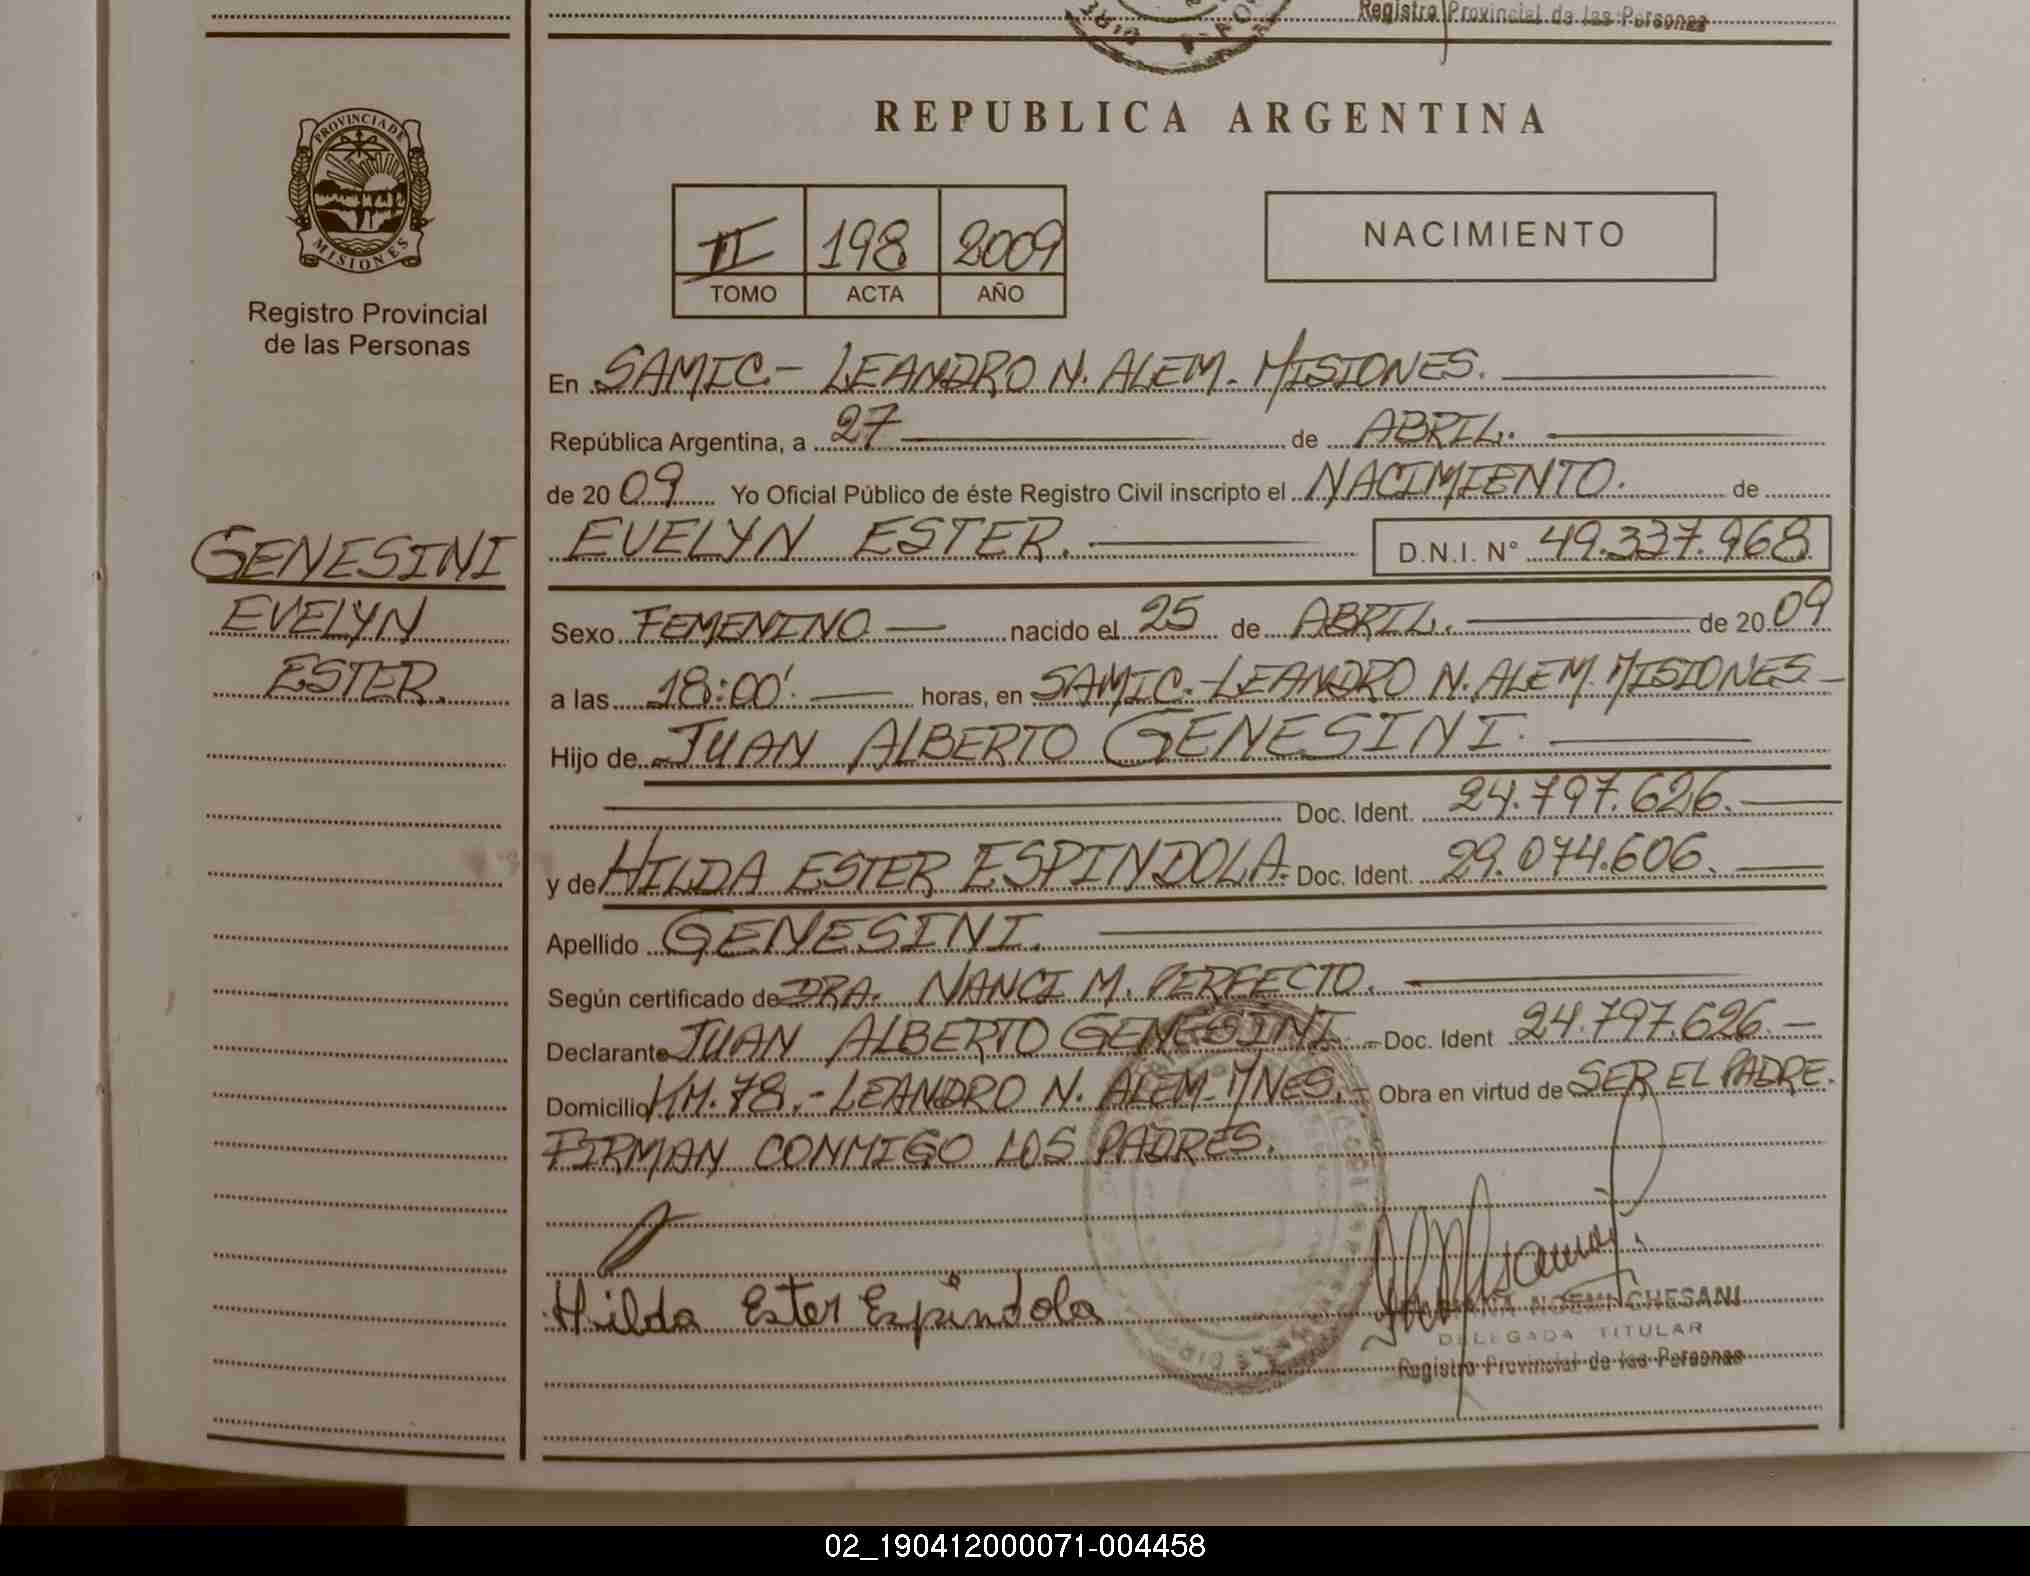 Registro Provincial de las Personas
REPUBLICA ARGENTINA
PROVINCIA DE
MISIONES
Registro Provincial
de las Personas
II 198 2009
TOMO ACTA AÑO
NACIMIENTO
En SAMIC.- LEANDRO N. ALEM. MISIONES.
República Argentina, a 27 de ABRIL.
de 2009 Yo Oficial Público de éste Registro Civil inscripto el NACIMIENTO. de
EVELYN ESTER. D.N.I. N° 49.337.968
GENESINI
EVELYN
ESTER.
Sexo FEMENINO nacido el 25 de ABRIL. de 2009
a las 18:00'. horas, en SAMIC.-LEANDRO N. ALEM. MISIONES.-
Hijo de JUAN ALBERTO GENESINI.
Doc. Ident. 24.797.626.
y de HILDA ESTER ESPINDOLA. Doc. Ident. 29.074.606.
Apellido GENESINI.
Según certificado de DRA. NANCI M. PERFECTO.
Declarante JUAN ALBERTO GENESINI.- Doc. Ident 24.797.626.-
Domicilio KM. 78.-LEANDRO N. ALEM-MNES.- Obra en virtud de SER EL PADRE.
FIRMAN CONMIGO LOS PADRES.
Hilda Ester Espindola
NOEMI CHESANI
DELEGADA TITULAR
Registro Provincial de las Personas
02_190412000071-004458